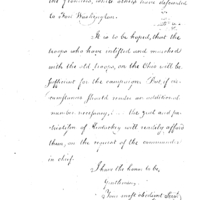 to Fort Washington.
It is to be hoped, that the
troops who have enlisted and marched
with the old troops, on the Ohio will be
sufficient for the campaign. But if cir-
cumstances should render an additional
number necessary, the zeal and pa-
triotism of Kentucky will readily afford
them, on the request of the commander
in chief.
I have the honor to be,
Gentlemen,
Your most obedient Servt.